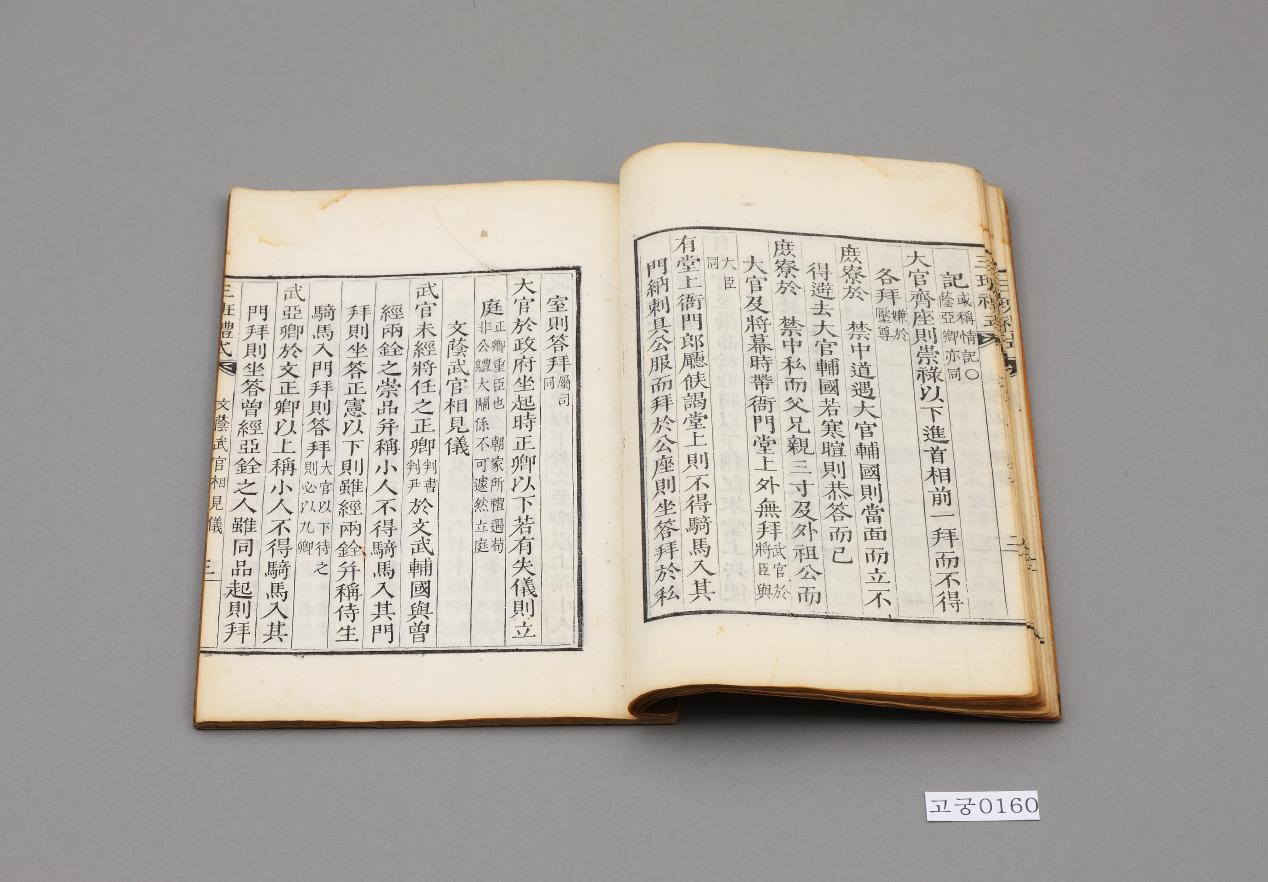 三班禮式
記或稱情記○蔭亞卿亦同
大官齊座則崇祿以下進首相前一拜而不得
各拜嫌於壓尊
庶寮於 禁中道遇大官輔國則當面而立不
得避去大官輔國若寒暄則恭答而已
庶寮於 禁中私而父兄親三寸及外祖公而
大官及將幕時帶衙門堂上外無拜武官於將臣與
大臣同
有堂上衙門郎廳候謁堂上則不得騎馬入其
門納刺具公服而拜於公座則坐答拜於私
室則答拜屬司同
大官於政府坐起時正卿以下若有失儀則立
庭正卿重臣也 朝家所禮遇苟非公軆大關係不可遽然立庭
文蔭武官相見儀
武官未經將任之正卿判書判尹於文武輔國與曾
經兩銓之崇品幷稱小人不得騎馬入其門
拜則坐答正憲以下則雖經兩銓幷稱侍生
騎馬入門拜則答拜大官以下待之則必以九卿
武亞卿於文正卿以上稱小人不得騎馬入其
門拜則坐答曾經亞銓之人雖同品起則拜
三班禮式 文蔭武官相見儀 三
고궁0160